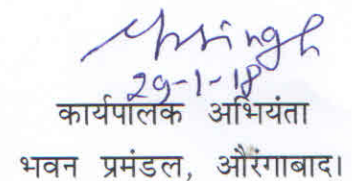 29-1-18
कार्यपालक अभियंता
भवन प्रमंडल, औरंगाबाद।